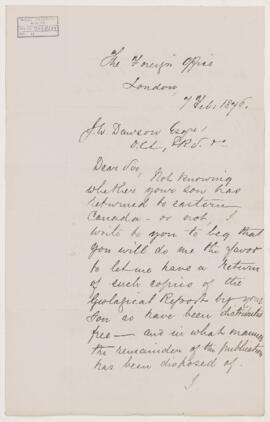 The Foreign Office
London,
7 Feb. 1876.
J. W. Dawson Esqr.
Dear Sir, Not knowing
whether your son has
returned to eastern
Canada - or not, I
write to you to beg that
you will do me the favor
to let me have a return
of such copies of the
Geological Report by your
Son as have been distributed
free - and in what manner
the remainder of the publication
has been disposed of.
I